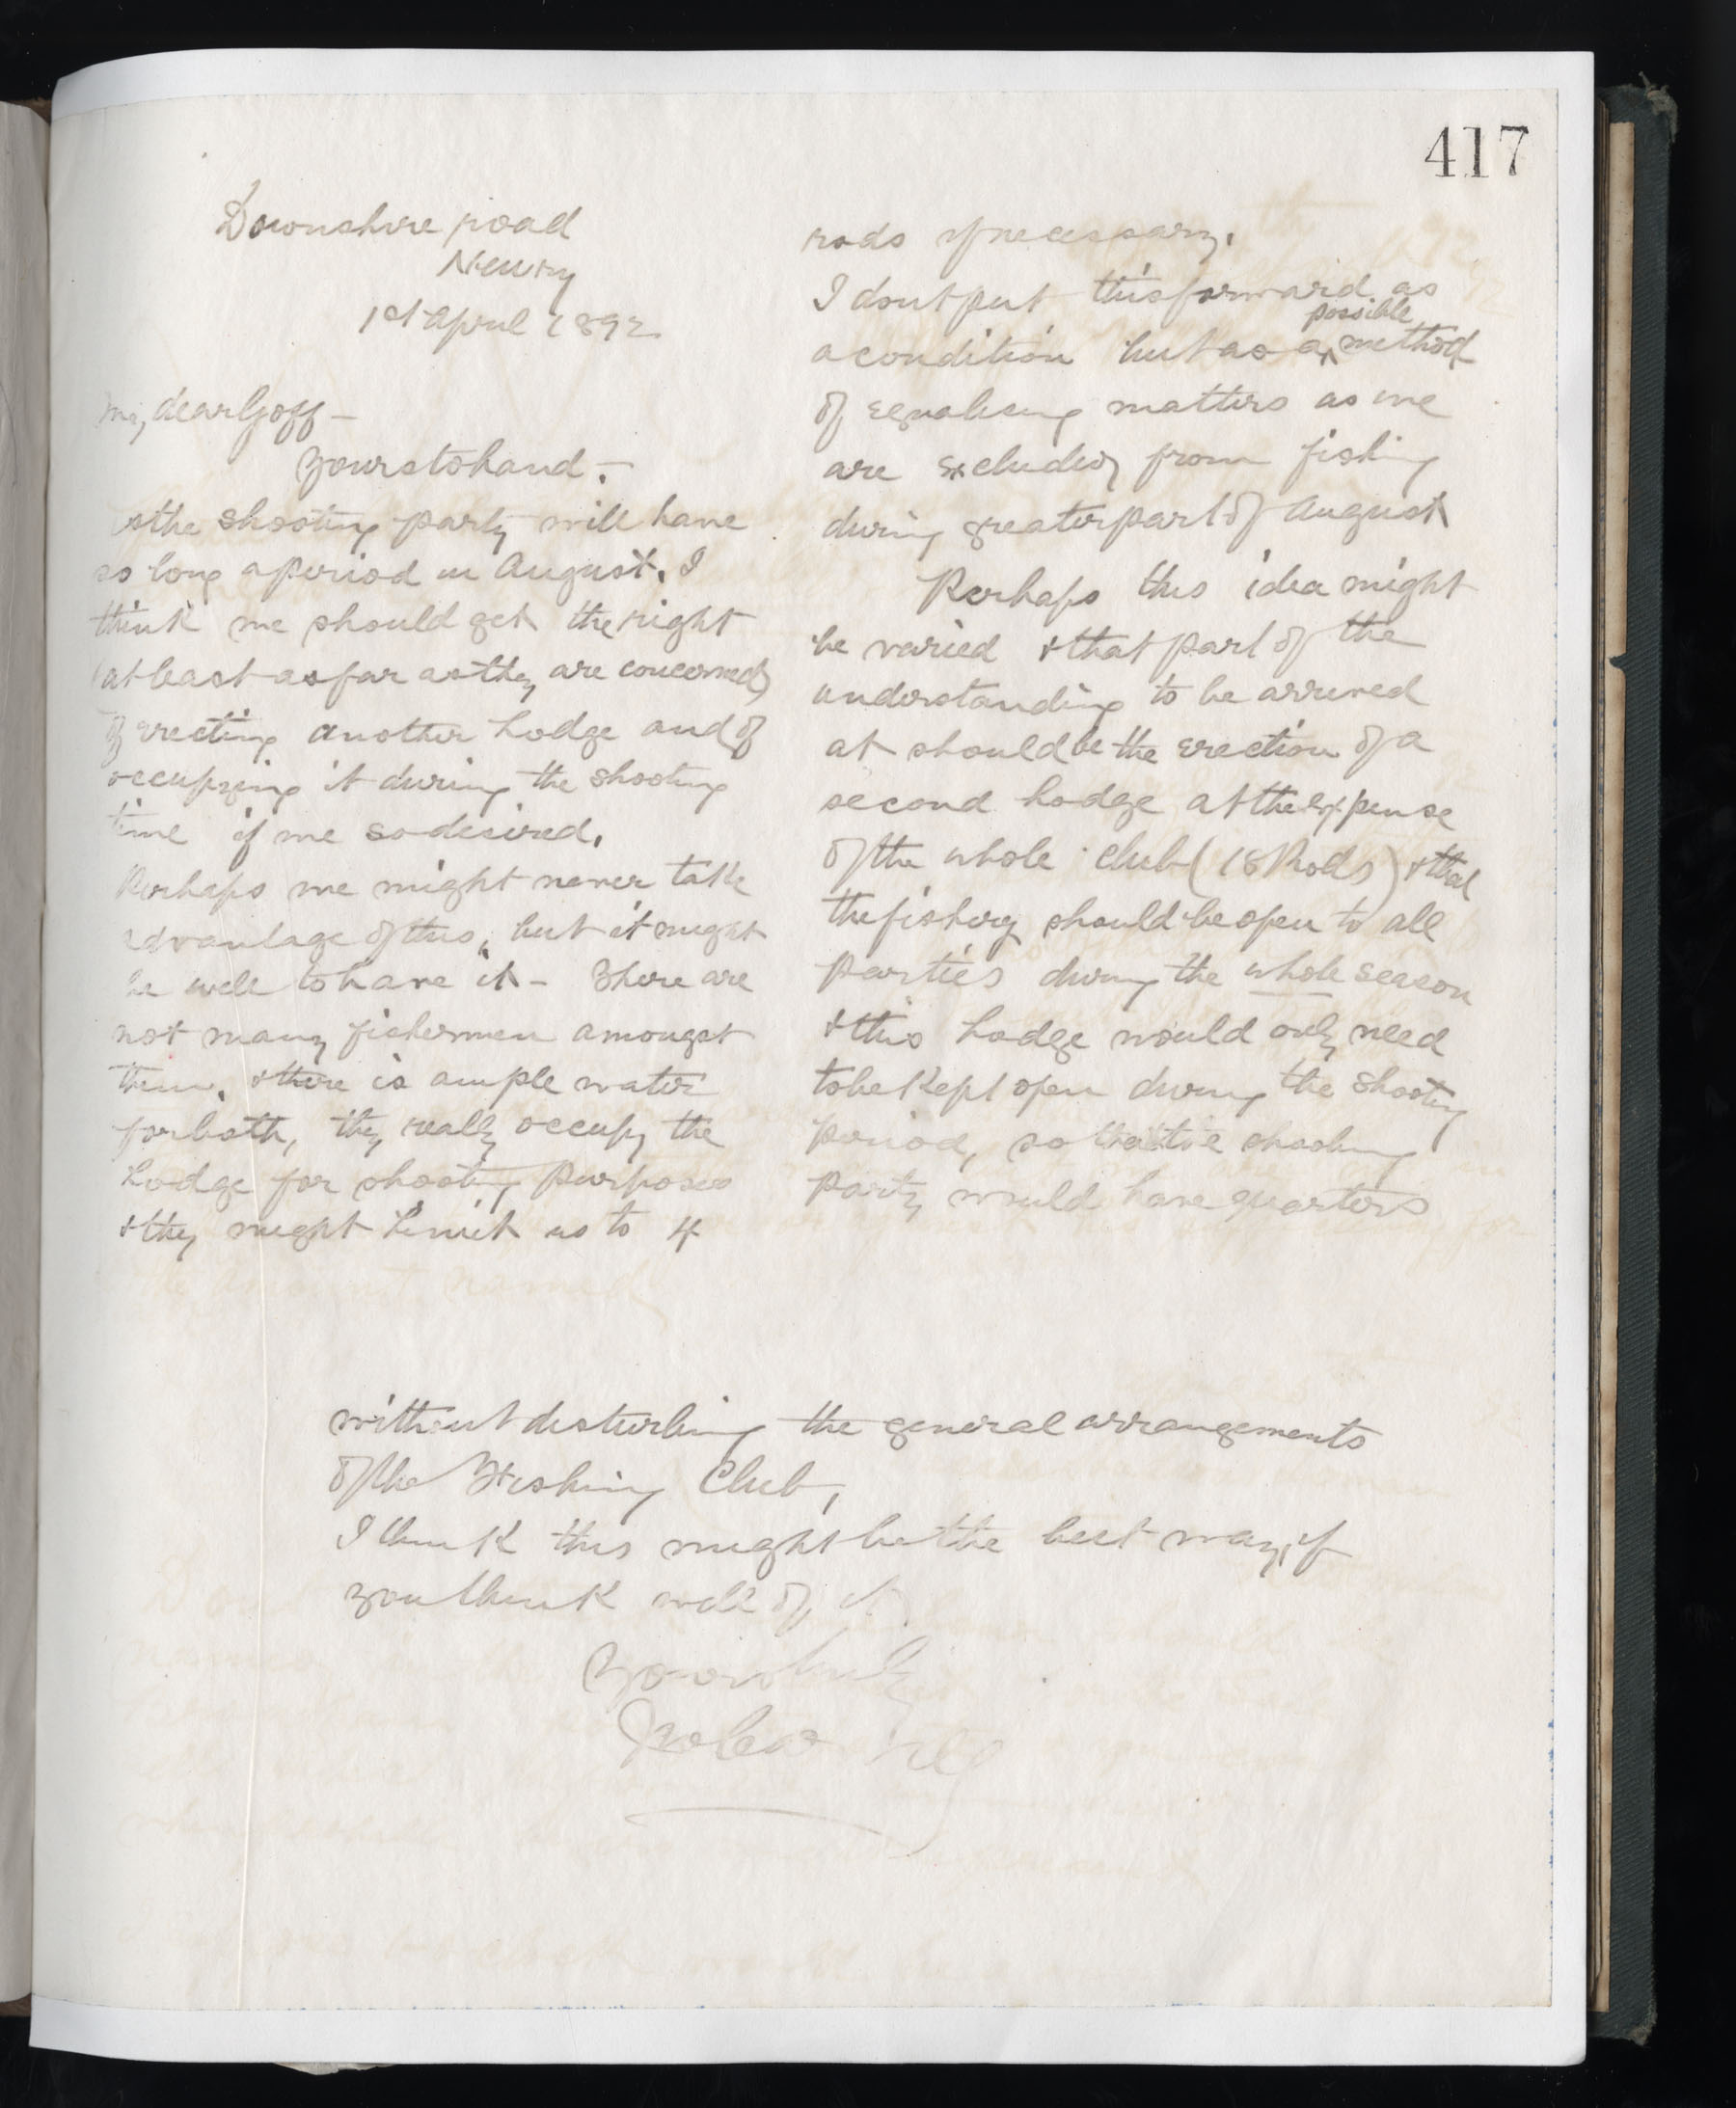 417
Downshire road
Newry
1st April 1892
My dear Goff –
Yours to hand. –
As the shooting party will have
so long a period in August, I
think we should get the right
(at least as far as they are concerned)
of erecting another Lodge and of
occupying it during the shooting
time if we so desired.
Perhaps we might never take
advantage of this, but it might
be well to have it – There are
not many fishermen amongst
them, & there is ample water
for both, they really occupy the
Lodge for shooting purposes
& they might limit us to 4
rods if necessary.
I dont put this forward as
a condition but as a possible method
of equalising matters as we
are excluded from fishing
during greater part of August
Perhaps this idea might
be varied & that part of the
understanding to be arrived
at should be the erection of a
second Lodge at the expense
of the whole club (18 Rods) & that
the fishing should be open to all
parties during the whole season
& this Lodge would only need
to be kept open during the shooting
period, so that the shooting
party would have quarters
without disturbing the general arrangements
of the Fishing Club,
I think this might be the best way, if
you think well of it.
Yours truly